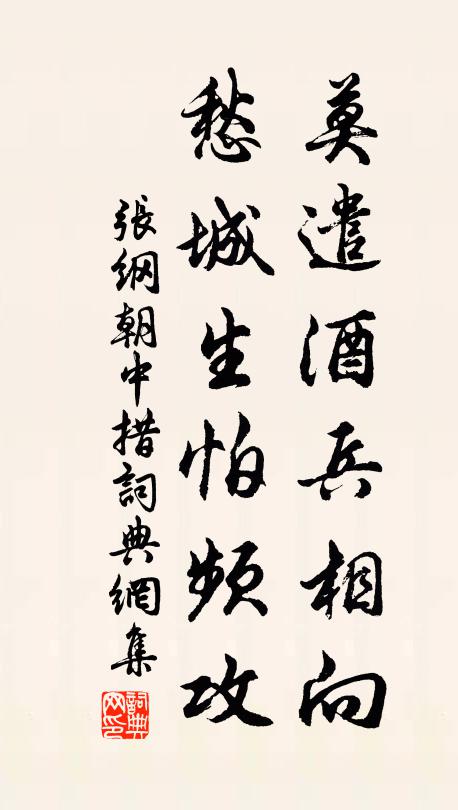 莫遣酒兵相向
愁城生怕頻攻
張綱朝中措詞典網集
詞典
网印